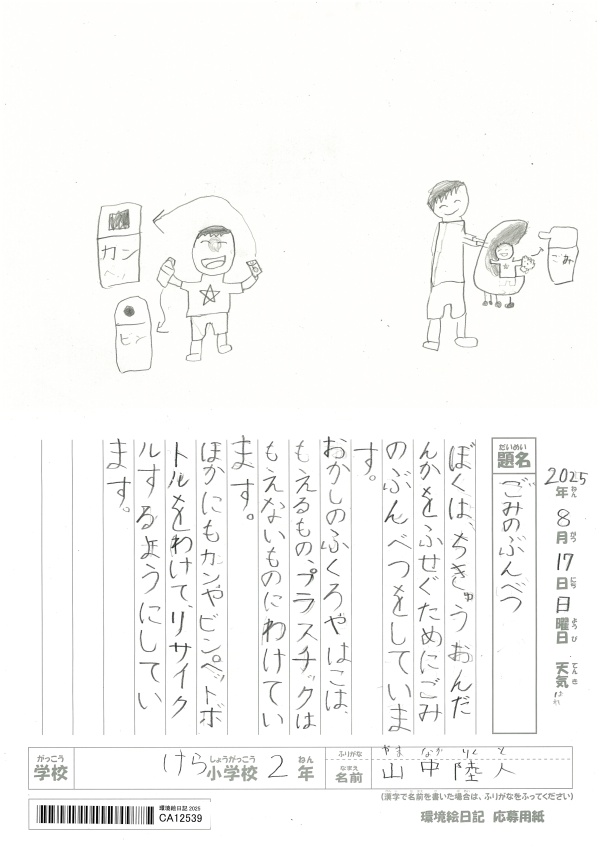 カン
ビン
ごみ
2025年ねん8月がつ17日にち日曜日ようび 天気てんきはれ
だいめい
題名
ごみのぶんべつ
ぼくは、ちきゅうおんだ
んかをふせぐためにごみ
のぶんべつをしていま
す。
おかしのふくろやはこは、
もえるもの、プラスチックは
もえないものにわけてい
ます。
ほかにもカンやビン、ペットボ
トルをわけて、リサイク
ルするようにしてい
ます。
がっこう
学校
けら小学校しょうがっこう2年ねん
ふりがな
やま なか りく と
なまえ
名前
山中陸人
(漢字で名前を書いた場合は、ふりがなをふってください)
環境絵日記 2025
CA12539
環境絵日記 応募用紙